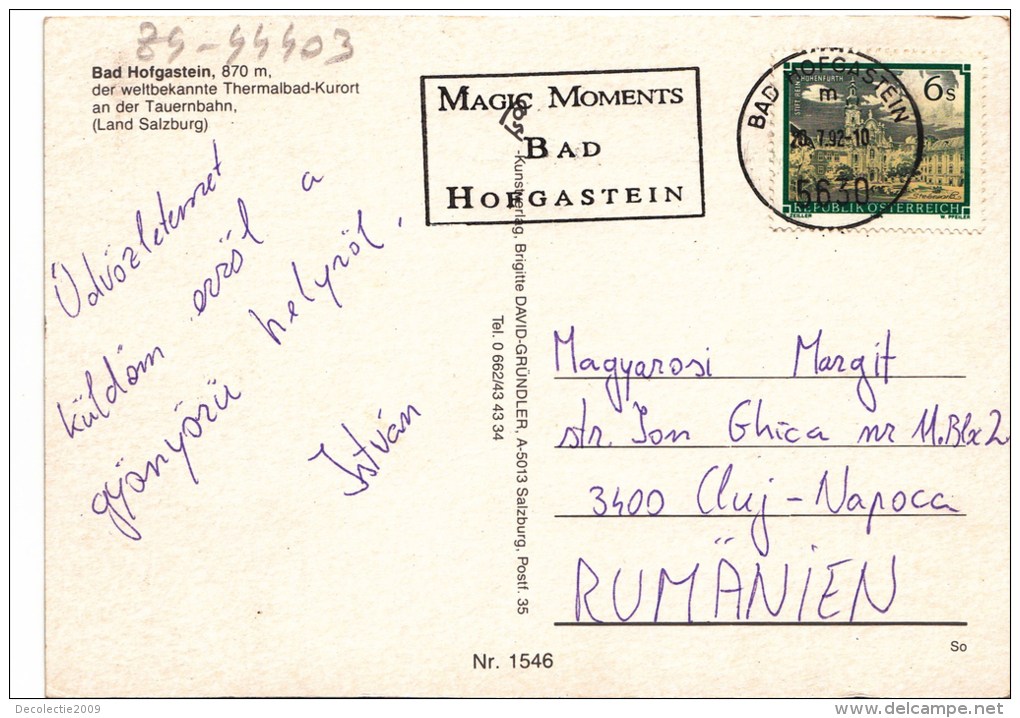 Z4-44403
Bad Hofgastein, 870 m,
der weltbekannte Thermalbad-Kurort
an der Tauernbahn,
(Land Salzburg)
MAGIC MOMENTS
BAD
HOFGASTEIN
BAD HOFGASTEIN
m
7.92-10
5630
STIFT REIN-HOHENFURTH
6s
REPUBLIK ÖSTERREICH
ZEILLER
W. PFEILER
Üdvözletemet
küldöm erről a
gyönyörü helyről.
István
-Kunstverlag, Brigitte DAVID-GRÜNDLER, A-5013 Salzburg, Postf. 35
Tel. 0 662/43 43 34
Magyarosi Margit
str. Ion Ghica nr 11. Blx2
3400 Cluj-Napoca
RUMÄNIEN
So
Nr. 1546
Decolectie2009
delcampe.net